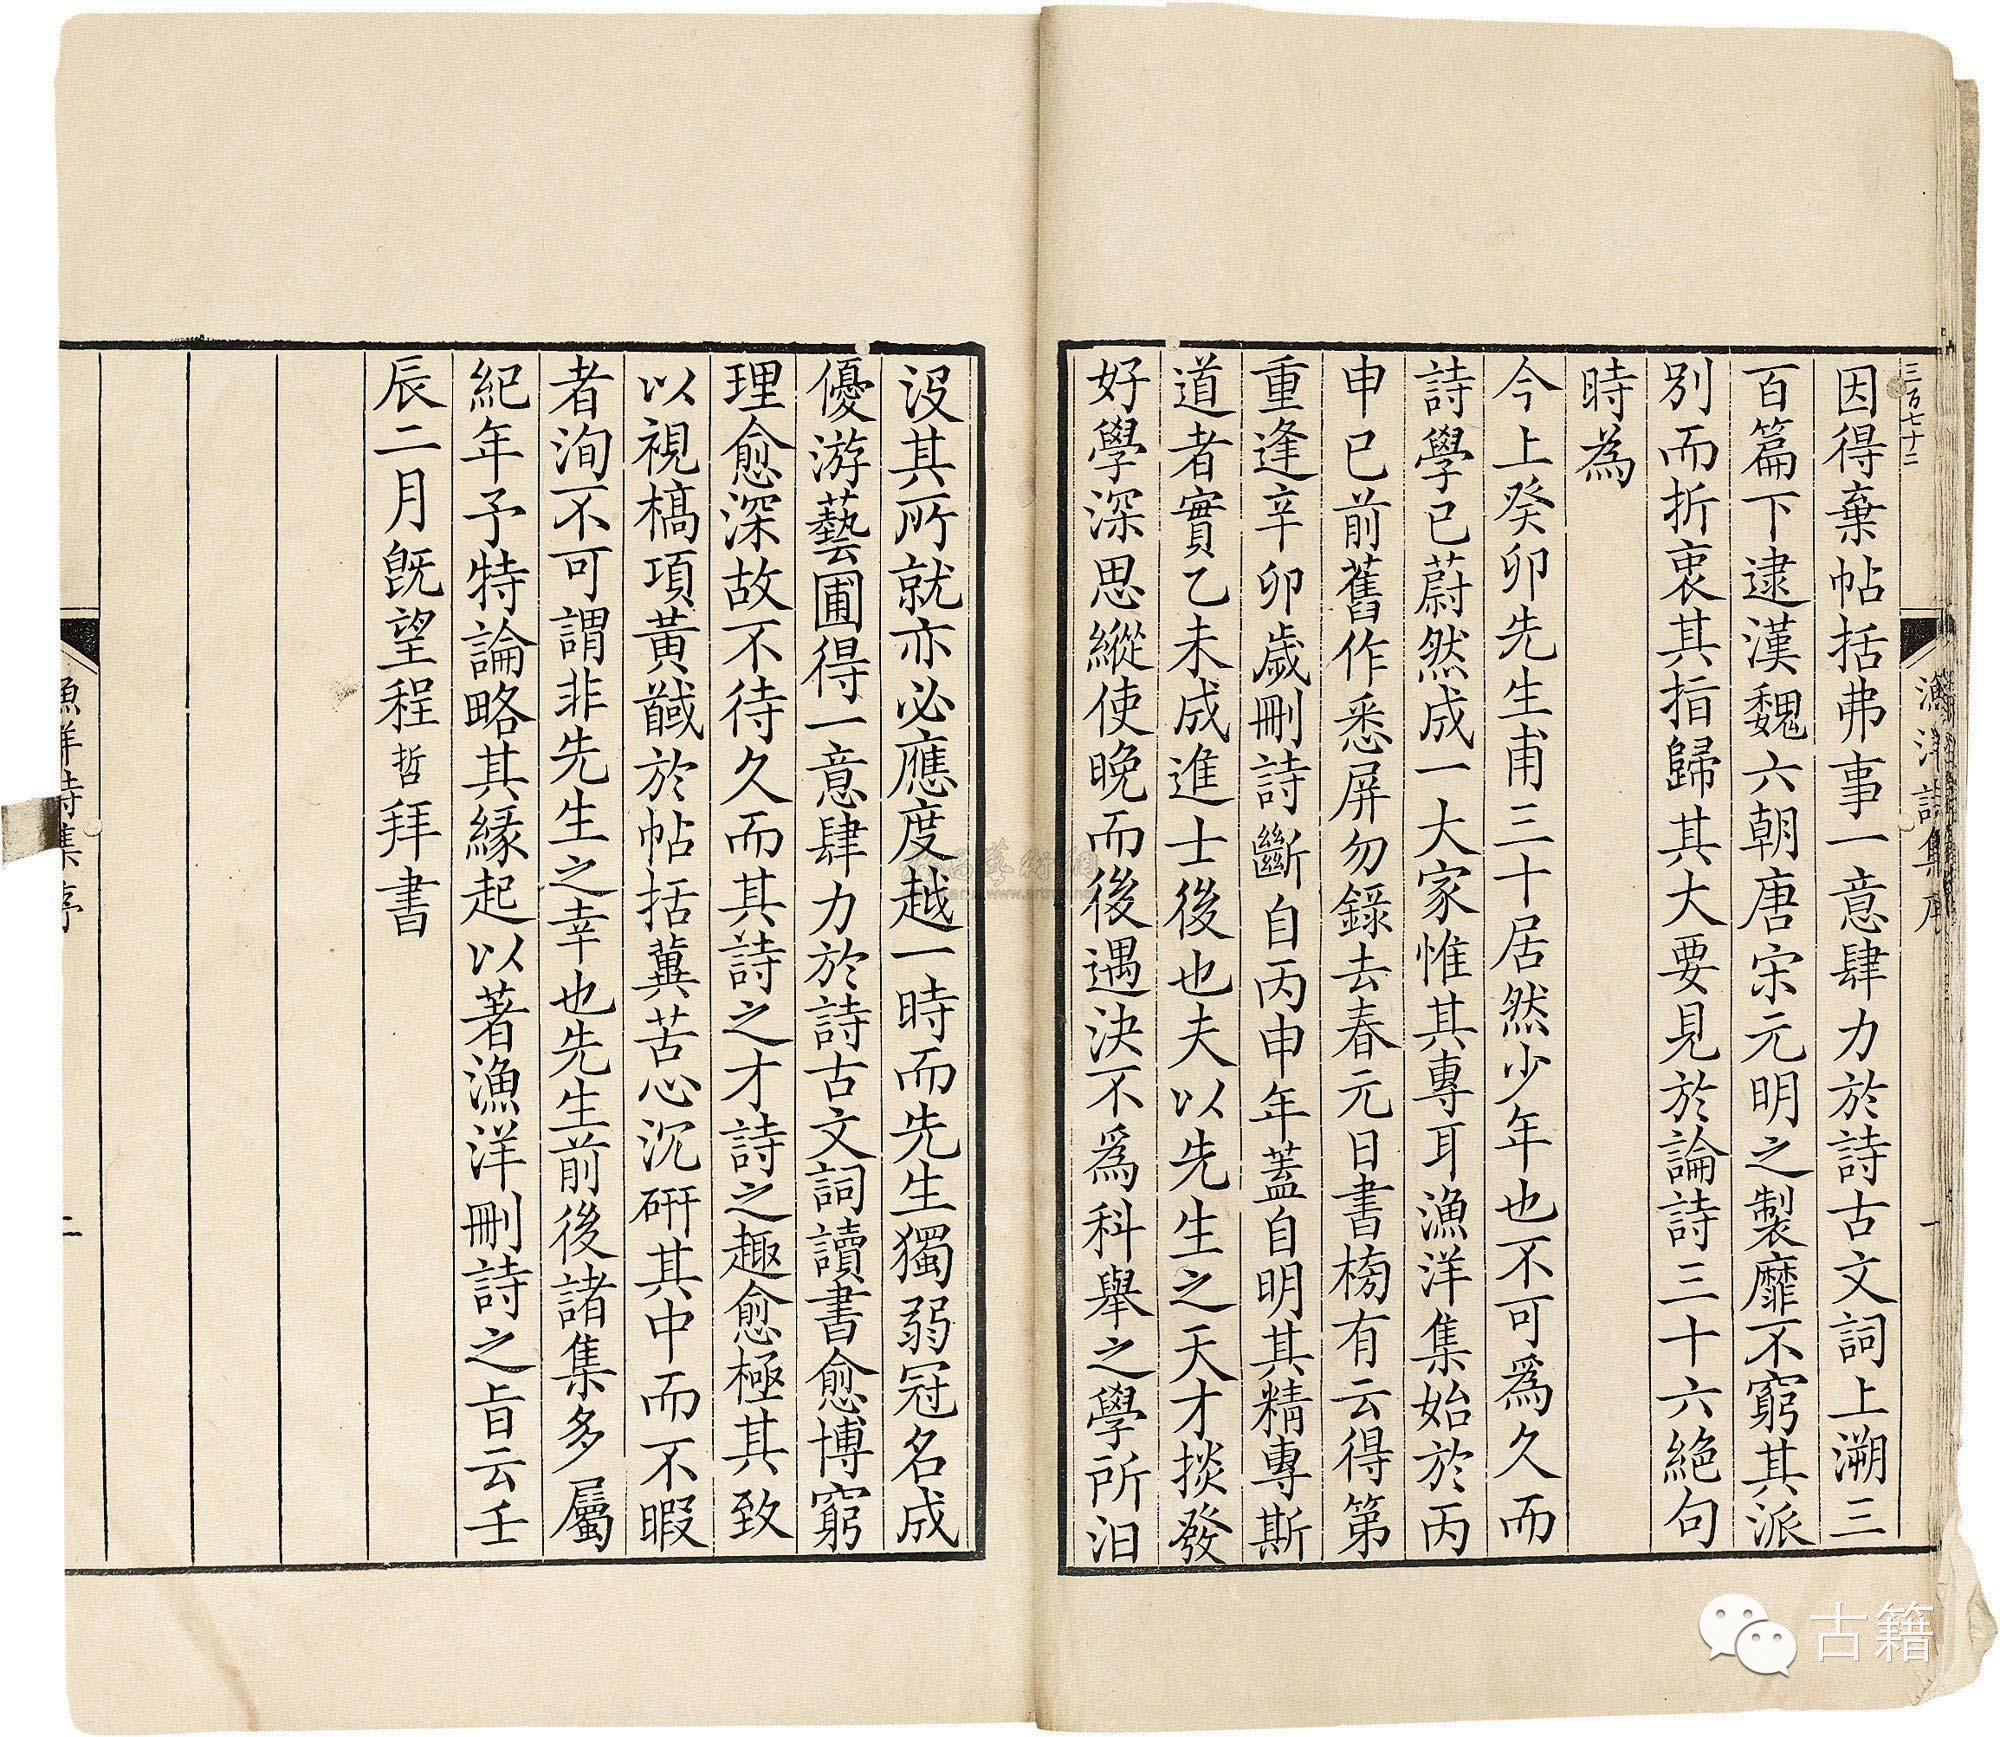 三百七十二
因得棄帖括弗事一意肆力於詩古文詞上溯三
百篇下逮漢魏六朝唐宋元明之製靡不窮其派
別而折衷其指歸其大要見於論詩三十六絕句
時為
今上癸卯先生甫三十居然少年也不可為久而
詩學已蔚然成一大家惟其專耳漁洋集始於丙
申已前舊作悉屏勿錄去春元日書榜有云得第
重逢辛卯歲刪詩斷自丙申年蓋自明其精專斯
道者實乙未成進士後也夫以先生之天才掞發
好學深思縱使晚而後遇決不為科舉之學所汩
漁洋詩集序
一
沒其所就亦必應度越一時而先生獨弱冠名成
優游藝圃得一意肆力於詩古文詞讀書愈博窮
理愈深故不待久而其詩之才詩之趣愈極其致
以視槁項黃馘於帖括冀苦心沉研其中而不暇
者洵不可謂非先生之幸也先生前後諸集多屬
紀年予特論略其緣起以著漁洋刪詩之旨云壬
辰二月旣望程哲拜書
漁洋詩集序
二
古籍